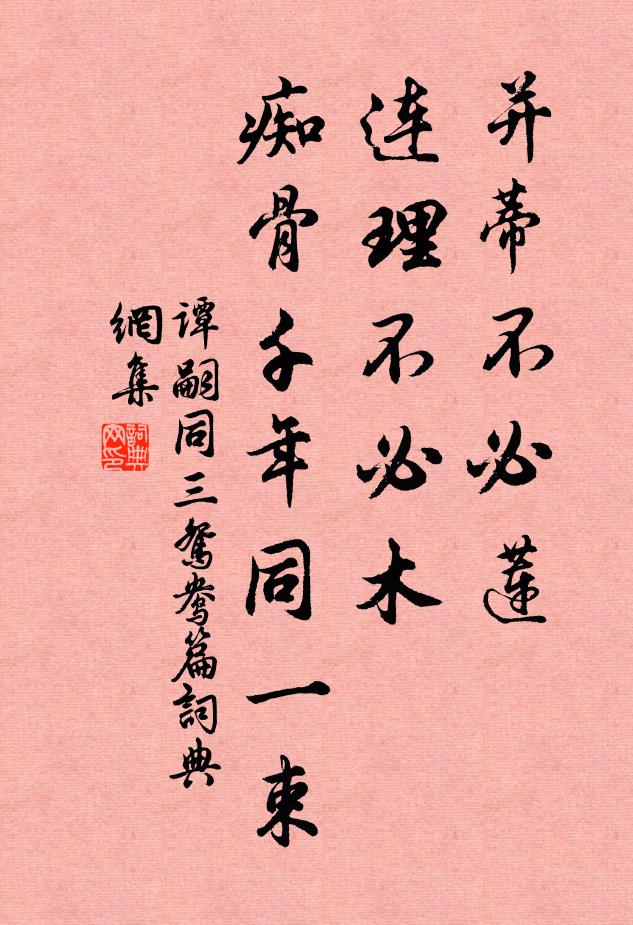 并蒂不必莲
连理不必木
痴骨千年同一束
谭嗣同三鸳鸯篇詞典
網集
詞典
网印